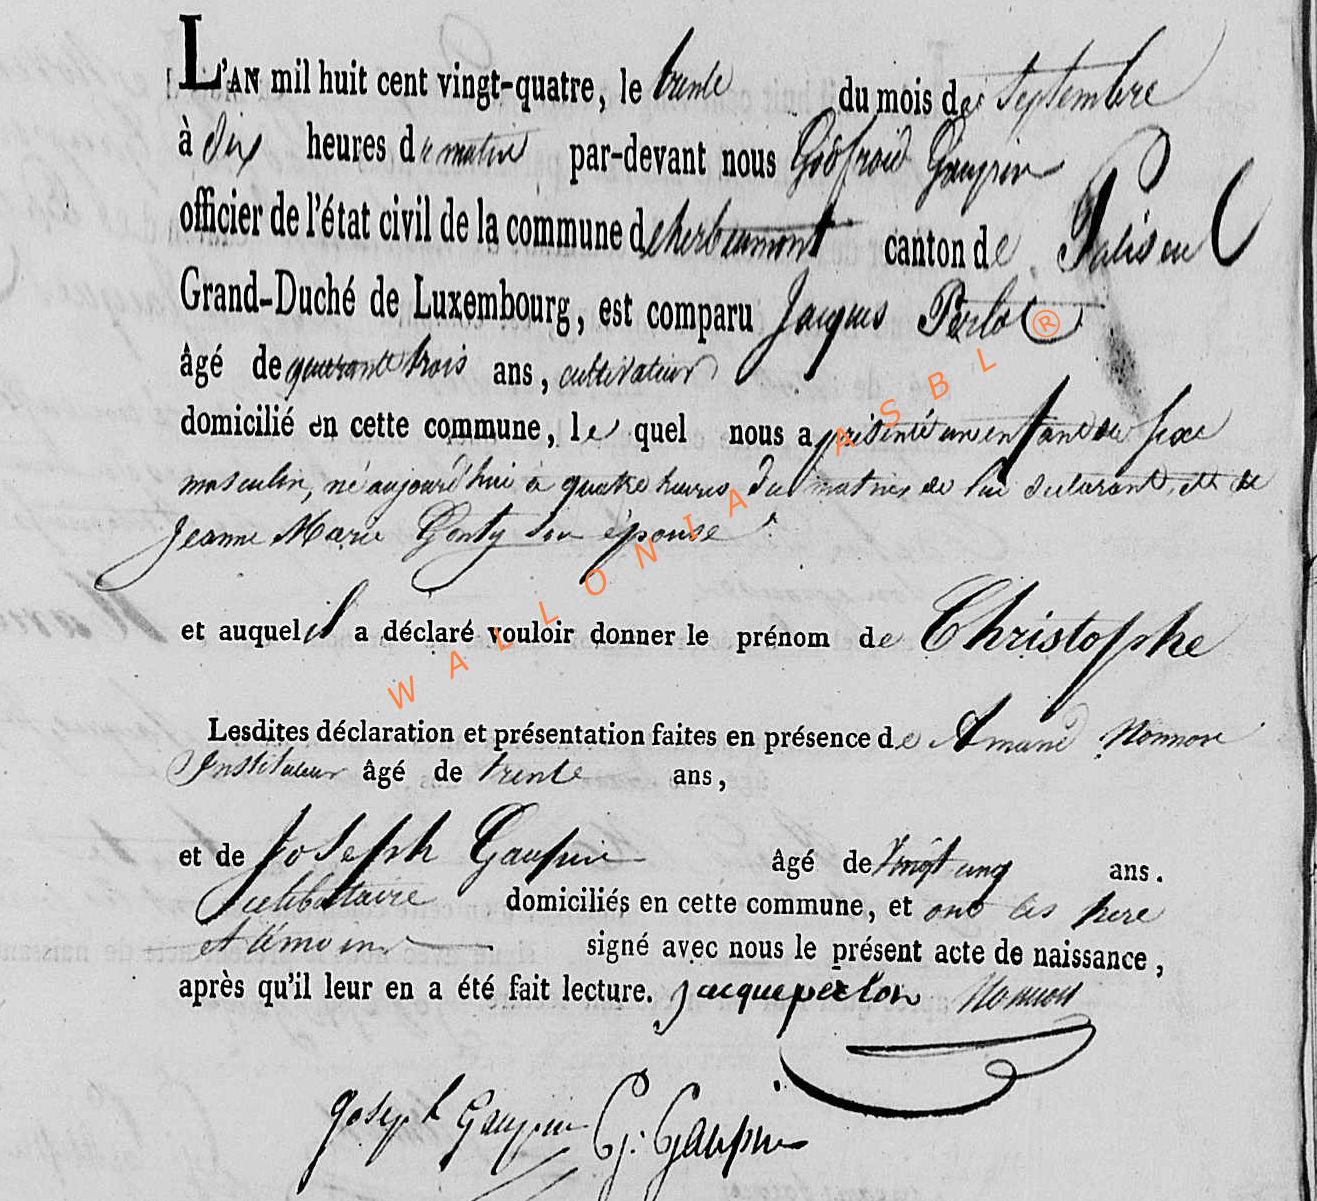 L'AN mil huit cent vingt-quatre, le trente du mois de Septembre
à dix heures du matin par-devant nous Godfroid Gaupin
officier de l'état civil de la commune de herbeumont canton de Paliseul
Grand-Duché de Luxembourg, est comparu Jacques Perlot ®
âgé de quarante trois ans, cultivateur
domicilié en cette commune, le quel nous a présenté un enfant du sexe
masculin, né aujourd'hui à quatre heures du matin de lui déclarant et de
Jeanne Marie Gonty son épouse
et auquel il a déclaré vouloir donner le prénom de Christophe
WALLONIA ASBL
Lesdites déclaration et présentation faites en présence de Amand
Instituteur âgé de trente ans,
et de Joseph Gaupin âgé de vingt cinq ans.
celibattaire domiciliés en cette commune, et ont les père
et témoins signé avec nous le présent acte de naissance,
après qu'il leur en a été fait lecture. jacque perlot
Joseph Gaupin G. Gaupin